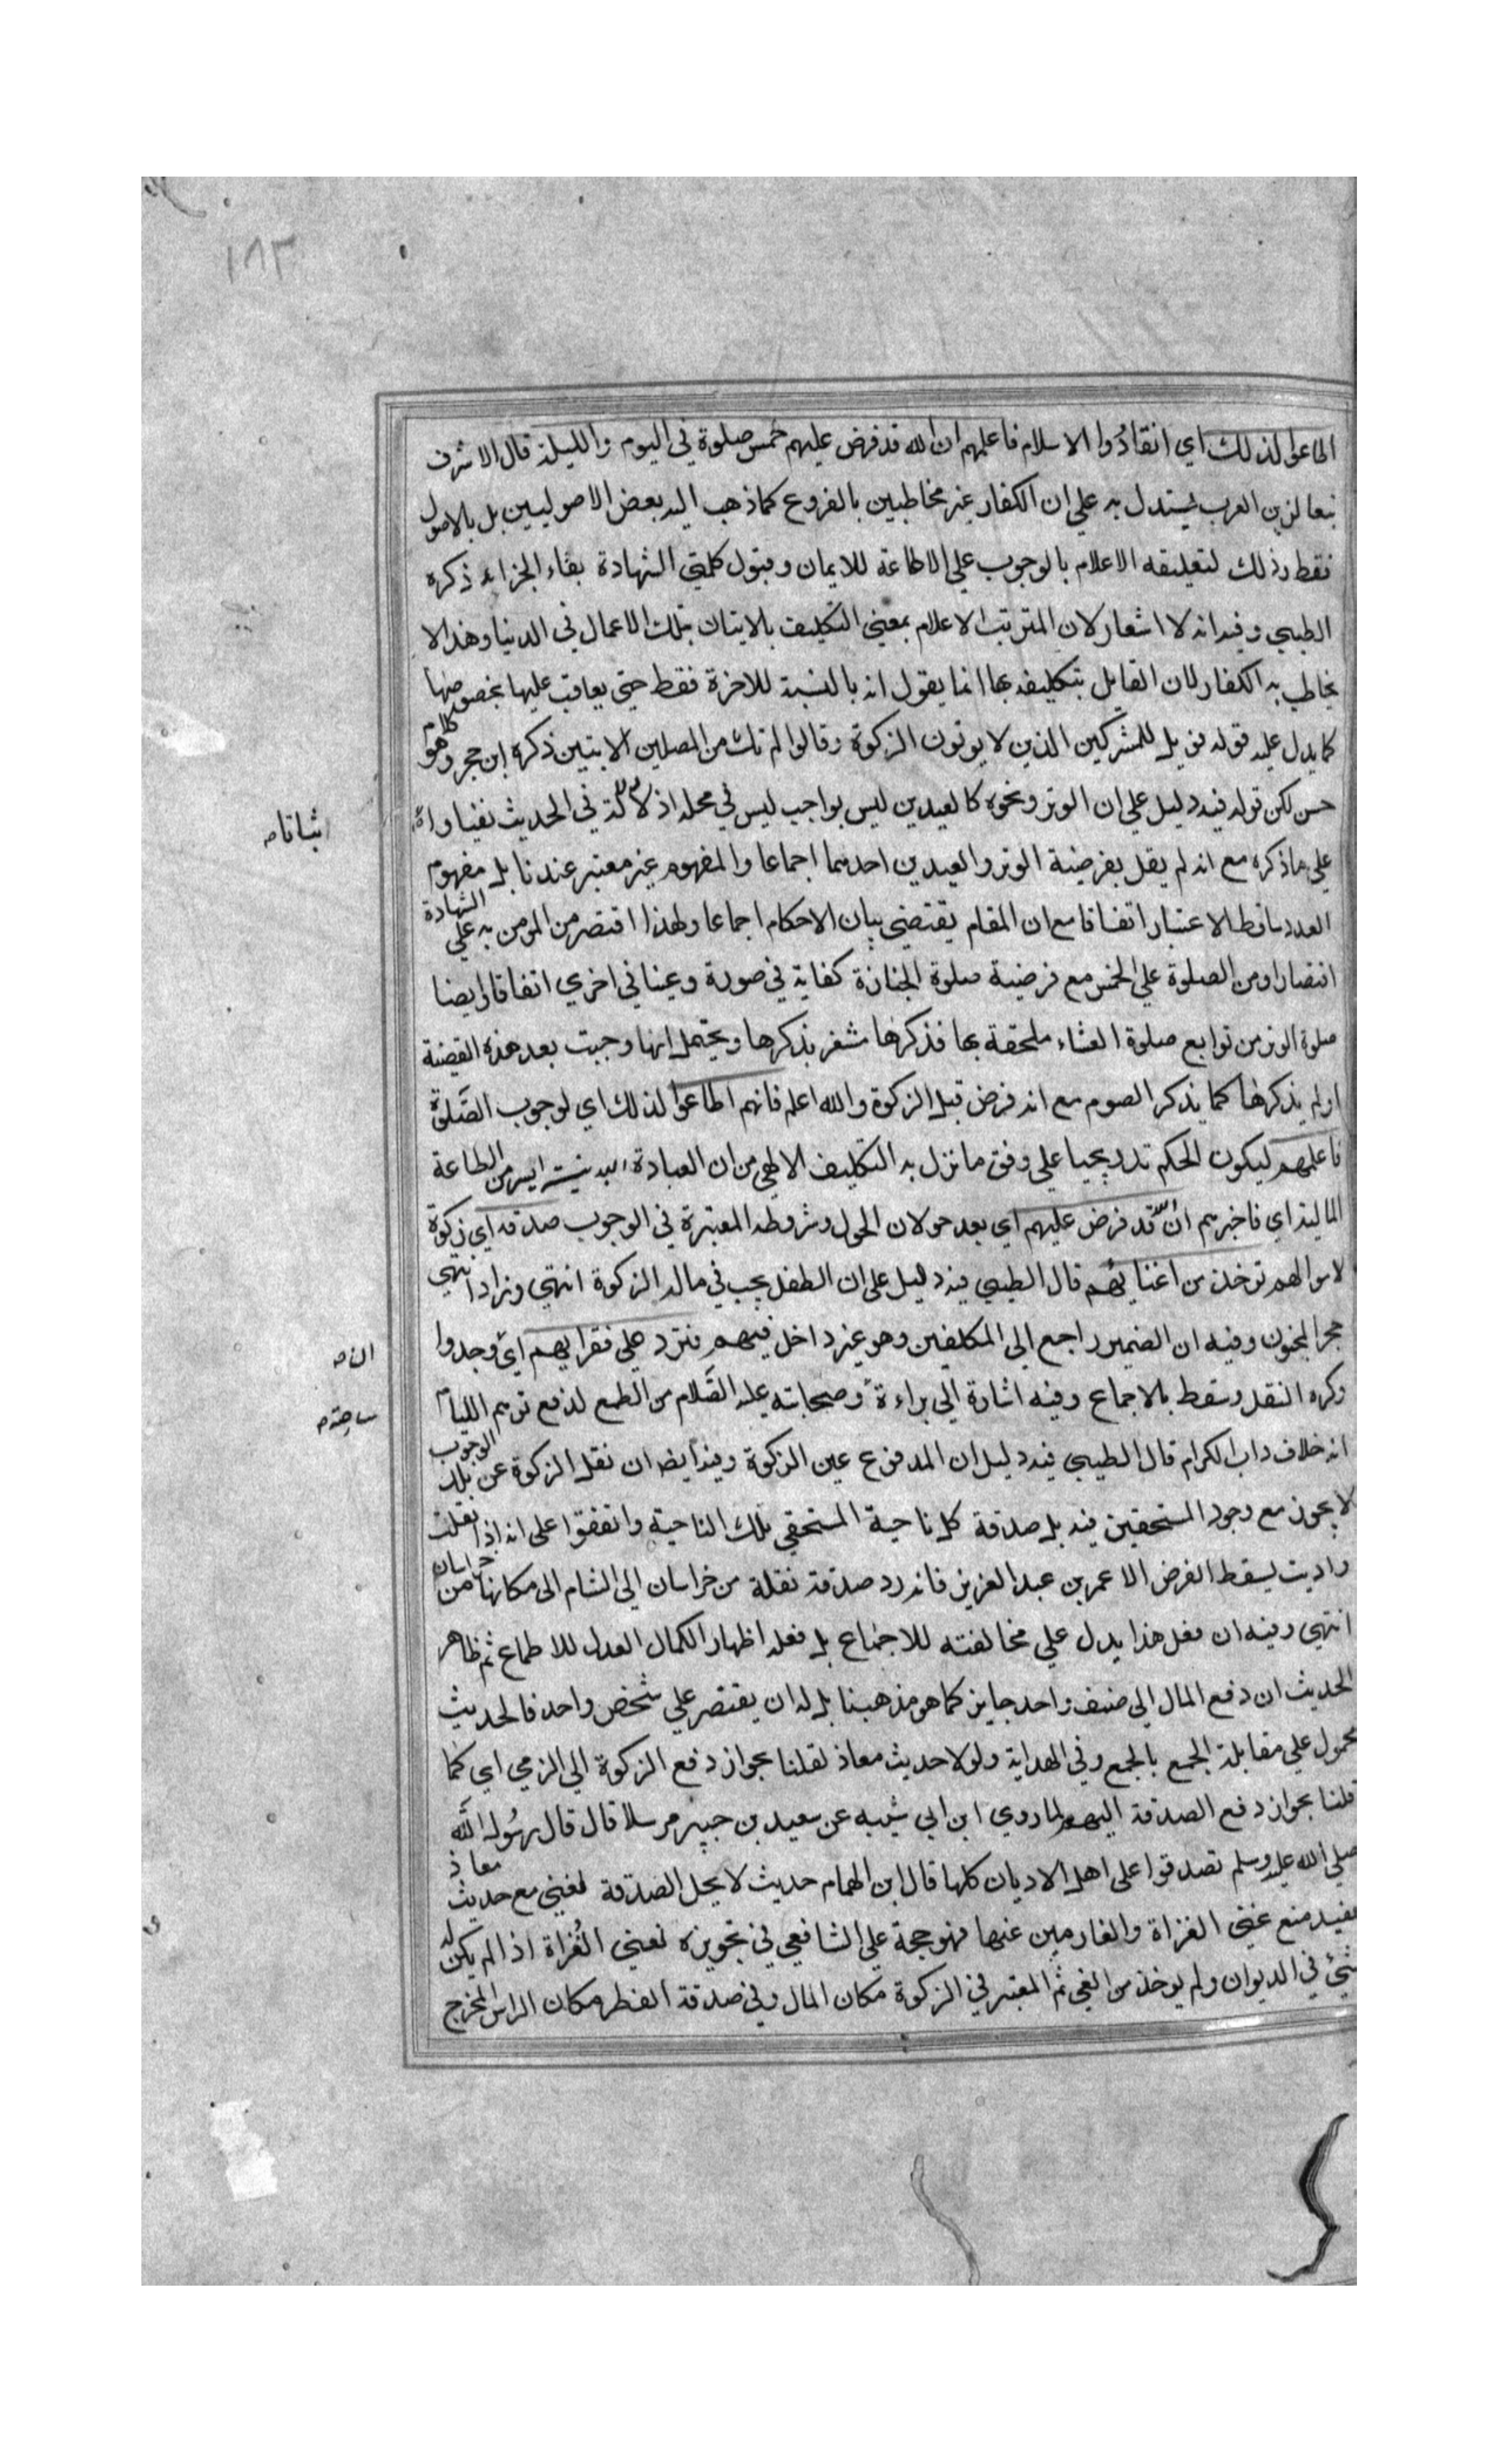 ١٨٣
اطاعوا لذلك اي انقادوا الاسلام فاعلمهم ان الله قد فرض عليهم خمس صلوة في اليوم والليلة قال الاشرف
تبعا لزين العرب يستدل به علي ان الكفار غير مخاطبين بالفروع كما ذهب اليه بعض الاصوليين بل بالاصول
فقط وذلك لتعليقه الاعلام بالوجوب علي الاطاعة للايمان وقبول كلمتي الشهادة بفاء الجزائه ذكره
الطيبي وفيه انه لا اشعار لان المترتب الاعلام بمعني التكليف بالاتيان بتلك الاعمال في الدنيا وهذا لا
يخاطب به الكفار لان القايل بتكليفه بها انما يقول انه بالنسبة للاخرة فقط حتي يعاقب عليها بخصوصها
كما يدل عليه قوله فويل للمشركين الذين لا يوتون الزكوة وقالوا لم نك من المصلين الايتين ذكره ابن حجر وهو كلام
حسن لكن قوله فيه دليل علي ان الوتر ونحوه كالعيدين ليس بواجب ليس في محله اذ لا دلالة في الحديث نفيا و
اثباتا صح
علي ما ذكره مع انه لم يقل بفرضية الوتر والعيدين احد منهما اجماعا والمفهوم غير معتبر عندنا بل مفهوم
العدد ساقط الاعتبار اتفاقا مع ان المقام يقتضي بيان الاحكام اجماعا ولهذا اقتصر من المومن به علي الشهادة
اقتصارا ومن الصلوة علي الخمس مع فرضية صلوة الجنازة كفاية في صورة وعينا في اخري اتفاقا وايضا
صلوة الوتر من توابع صلوة العشاء ملحقة بها فذكرها مشعر بذكرها ويحتمل انها وجبت بعد هذه القضية
او لم يذكرها كما يذكر الصوم مع انه فرض قبل الزكوة والله اعلم فانهم اطاعوا لذلك اي لوجوب الصلوة
فاعلمهم ليكون الحكم تدريجيا علي وفق ما نزل به التكليف الالهي من ان العبادة البدنية ايسر من الطاعة
المالية اي فاخبرهم ان الله قد فرض عليهم اي بعد حولان الحول وشروطه المعتبرة في الوجوب صدقة اي زكوة
لاموالهم توخذ من اغنيائهم قال الطيبي فيه دليل علي ان الطفل يجب في ماله الزكوة انتهي وزاد ابن
حجر المجنون وفيه ان الضمير راجع الي المكلفين وهو غير داخل فيهم فترد علي فقرايهم اي وجدوا
ان صح
وكره النقل وسقط بالاجماع وفيه اشارة الي براءة وصحابته عليه السلام من الطمع لدفع توهم الليام
ساحته صح
انه خلاف داب الكرام قال الطيبي فيه دليل ان المدفوع عين الزكوة وفيه ايضا ان نقل الزكوة عن بلد الوجوب
لا يجوز مع وجود المستحقين فيه بل صدقة كل ناحية المستحقي تلك الناحية واتفقوا علي انه اذا نقلت
واديت يسقط الفرض الا عمر بن عبد العزيز فانه رد صدقة نقلة من خراسان الي الشام الي مكانها من خراسان
انتهي وفيه ان فعل هذا يدل علي مخالفته للاجماع بل فعله اظهارا لكمال العدل للاطماع ثم ظاهر
الحديث ان دفع المال الي صنف واحد جايز كما هو مذهبنا بل له ان يقتصر علي شخص واحد فالحديث
محمول علي مقابلة الجمع بالجمع وفي الهداية ولولا حديث معاذ لقلنا بجواز دفع الزكوة الي الزمي اي كما
قلنا بجواز دفع الصدقة اليهم لما روي ابن ابي شيبه عن سعيد بن جبير مرسلا قال قال رسول الله
صلي الله عليه وسلم تصدقوا علي اهل الاديان كلها قال ابن الهمام حديث لا يحل الصدقة لغني مع حديث معاذ
يفيد منع غني الغزاة والغارمين عنها فهو حجة علي الشافعي في تجويزه لغني الغزاة اذا لم يكن له
شئ في الديوان ولم يوخذ من الفي ثم المعتبر في الزكوة مكان المال وفي صدقة الفطر مكان الراس المخرج